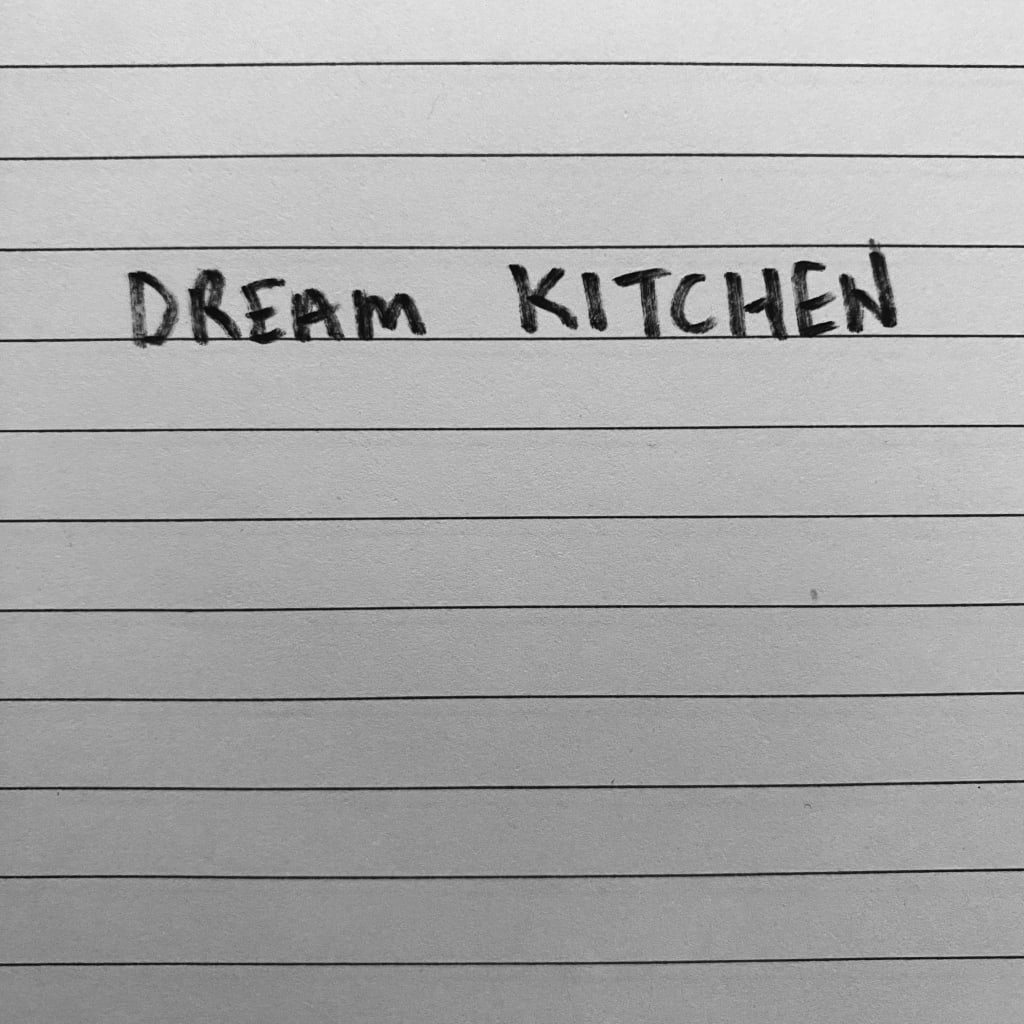 DREAM KITCHEN